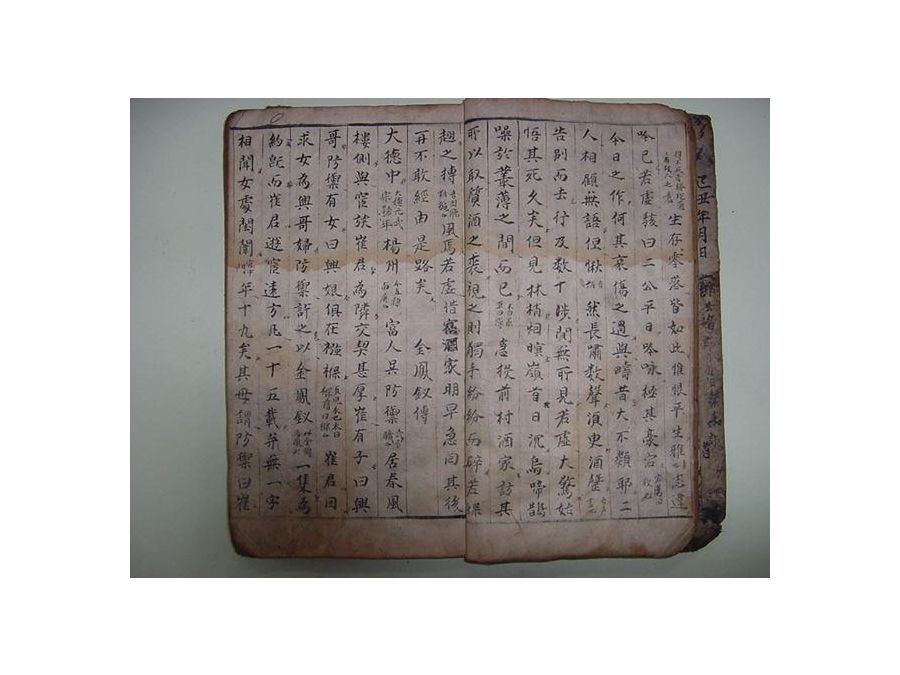 己丑年月日
生存零落皆如此惟恨平生雅志違
吟已若虛駭曰二公平日吟咏極其豪宕
今日之作何其哀傷之過與疇昔大不類耶二
人相顧無語但愀然長嘯数聲湏更酒罄
告別而去行及数十涉間無所見若虛大驚始
悟其死久矣但見林梢烟暝嶺首日沉烏啼鵲
噪於叢薄之間而已急投前村酒家訪其
所以取質酒之裘視之則獨手紛紛而碎若蝶
翅之摶風焉若虛借酒家明早急回其後
再不敢經由是路矣 金鳳釵傳
大德中大德元武宗諱年楊州富人吳防禦居春風
樓側與宦族崔君為隣交契甚厚崔有子曰興
哥防禦有女曰興娘俱在襁褓崔君因
求女為興哥婦防禦許之以金鳳釵一隻為
約旣而崔君遊宦遠方凡一十五載并無一字
相聞女處閨閤年十九矣其母謂防禦曰崔